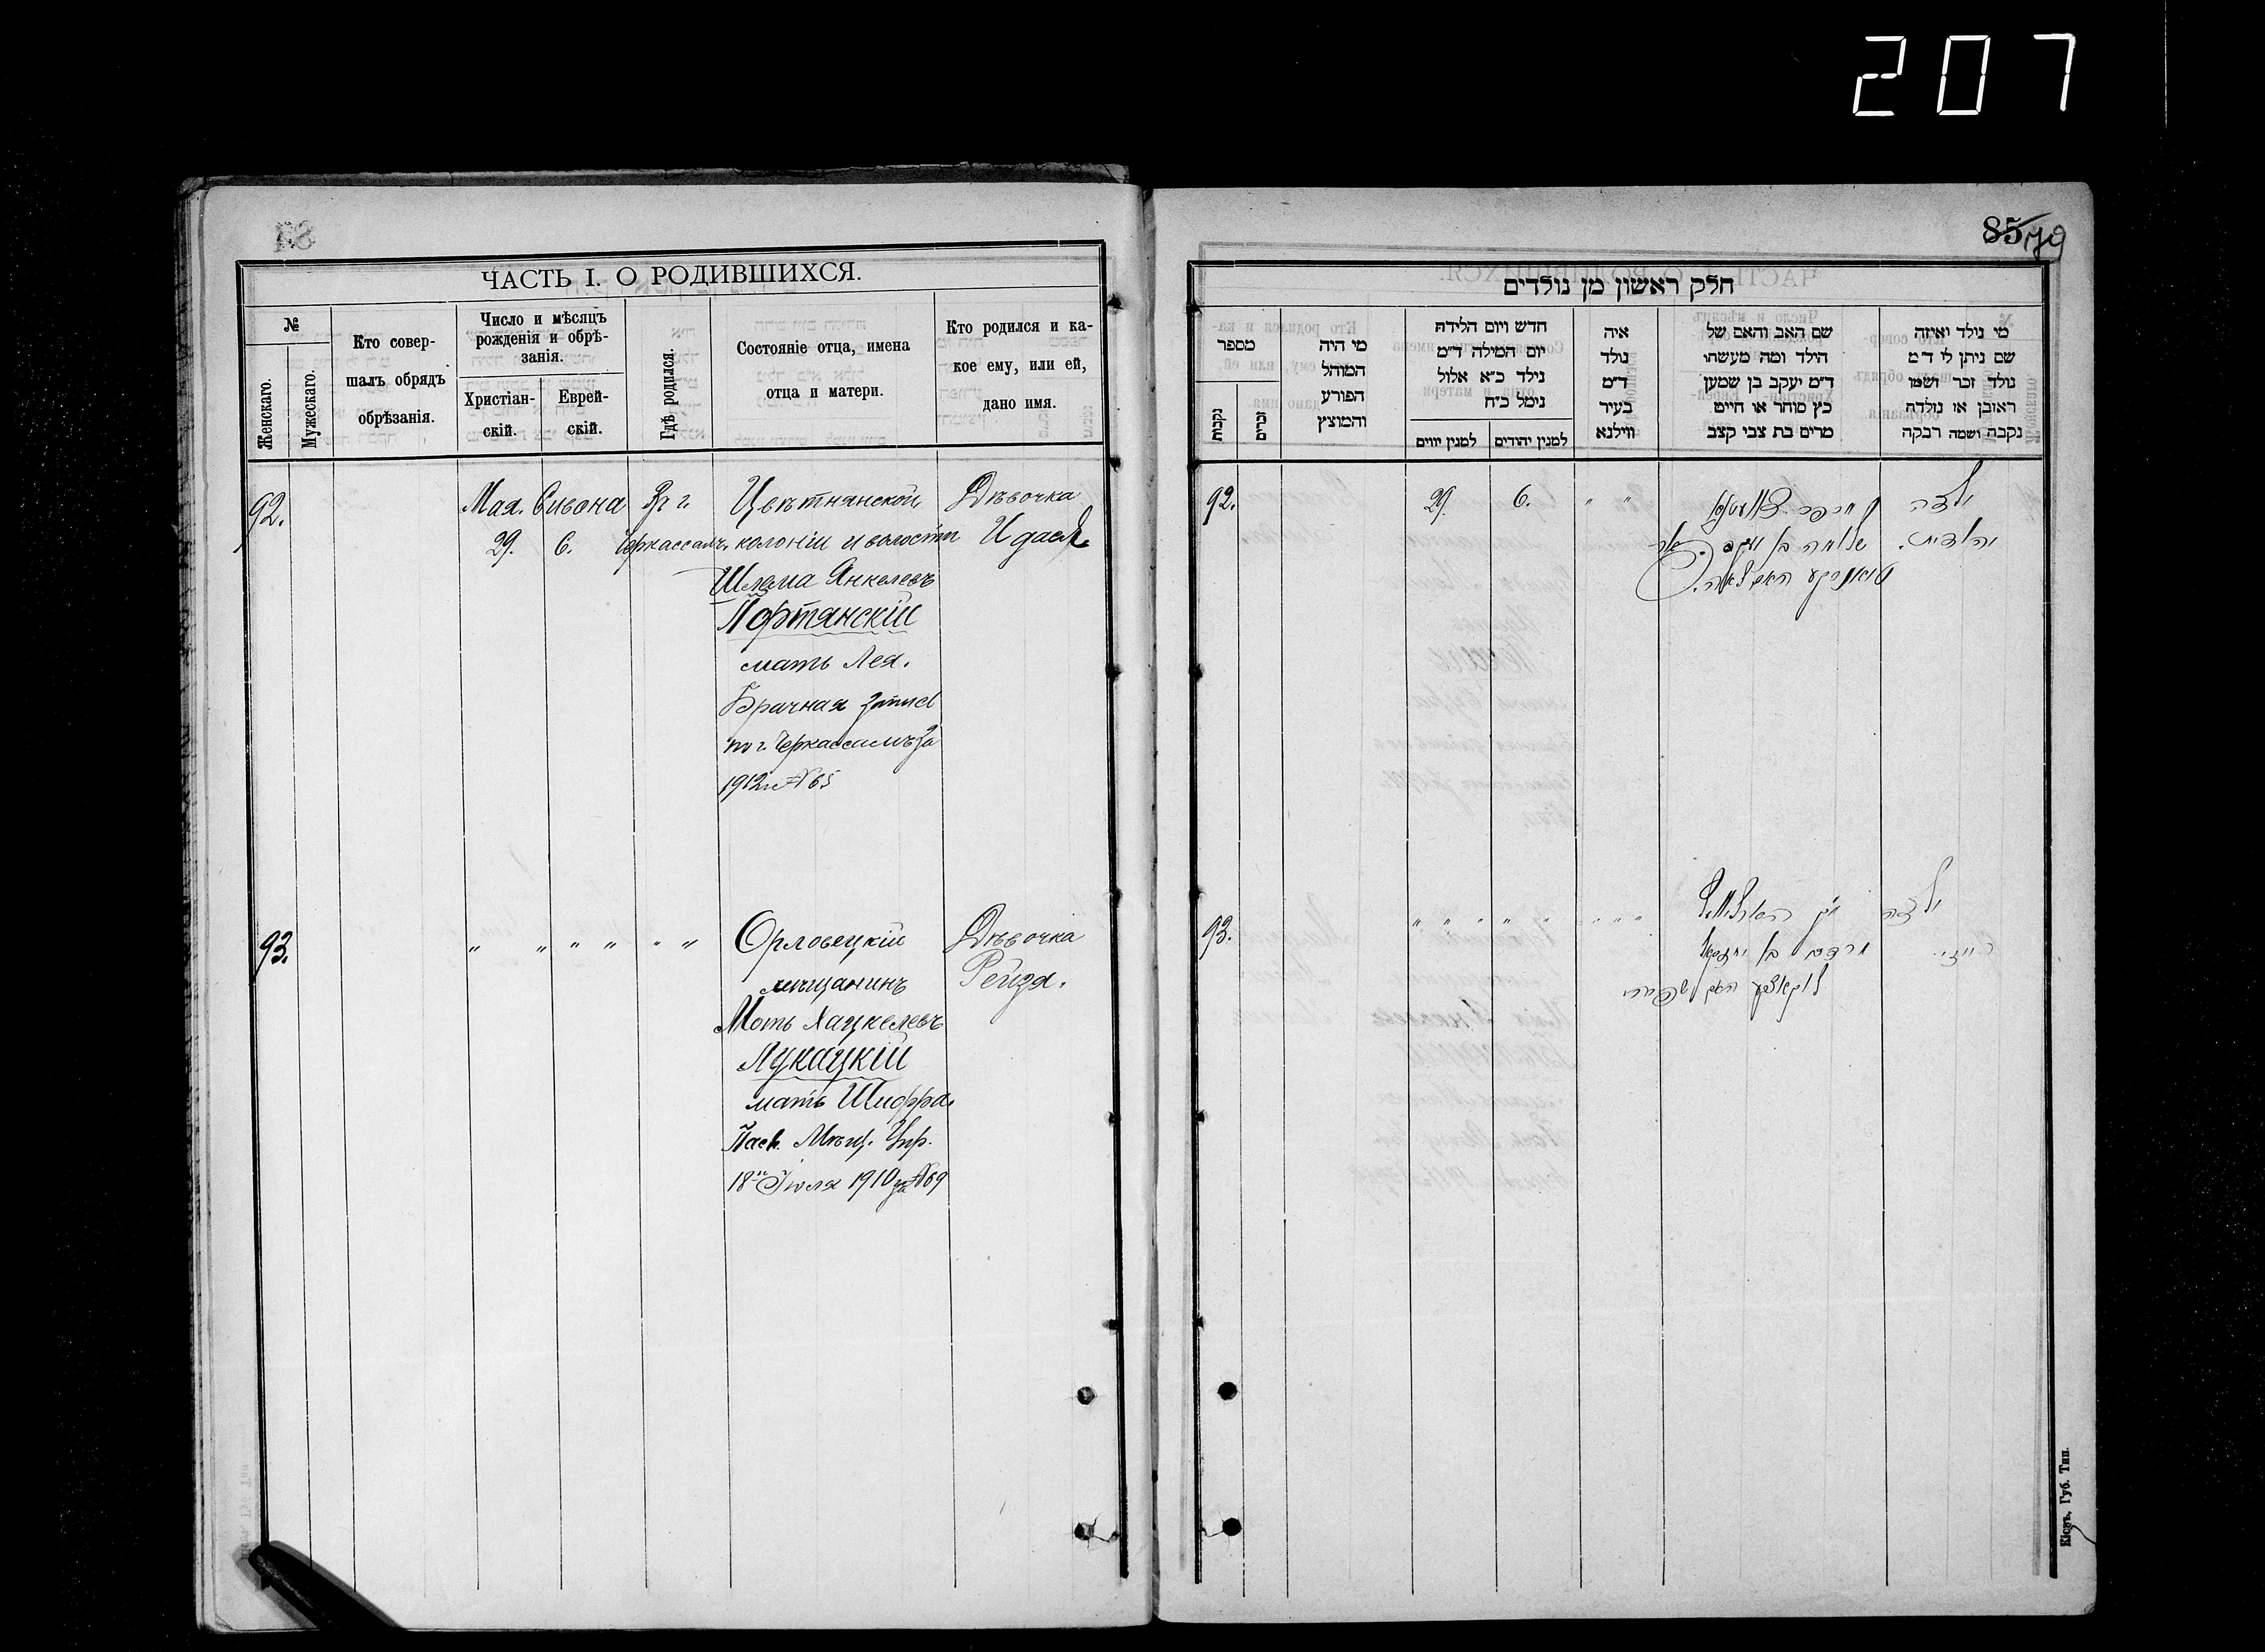 207
ЧАСТЬ I. О РОДИВШИХСЯ.
№
Женскаго.
Мужескаго.
Кто совер-
шалъ обрядъ
обрѣзанія.
Число и мѣсяцъ
рожденія и обрѣ-
занія.
Христіан-
скій.
Еврей-
скій.
Гдѣ родился.
Состояніе отца, имена
отца и матери.
Кто родился и ка-
кое ему, или ей,
дано имя.
92.
Мая. 29.
Сивона 6.
Въ г. Черкассахъ.
Цвѣтнянской
колоніи и волости
Шлема Янкелевъ
Портянскій
мать Лея.
Брачная запись
по г. Черкассамъ за
1912 г. № 65
Дѣвочка
Идася.
93.
" " " " " "
Орловецкій
мѣщанинъ
Моть Хацкелевъ
Лукацкій
мать Шифра.
Пасп. Мѣщ. Упр.
18го Іюля 1910 за № 69
Дѣвочка
Рейзя.
85
79
חלק ראשון מן נולדים
מספר
נקבות
זכרים
מי היה
המוהל
הפורע
והמוצץ
חדש ויום הלידה
יום המילה ד״מ
נילד כ״א אלול
נימל כ״ח
למנין יווים
למנין יהודים
איה
נולד
ד״מ
בעיר
ווילנא
שם האב והאם של
הילד ומה מעשהו
ד״מ יעקב בן שמען
כץ סוחר או חייט
מרים בת צבי קצב
מי נילד ואיזה
שם ניתן לו ד״מ
נולד זכר ושמו
ראובן או נולדה
נקבה ושמה רבקה
92.
29.
6.
" "
ילדה
שלמה בן יעקב
93.
" " " " " " " "
ילדה
רייזי
מרדכי בן יחזקאל
לוקאצקי האם שפרה
Кіевъ, Губ. Тип.